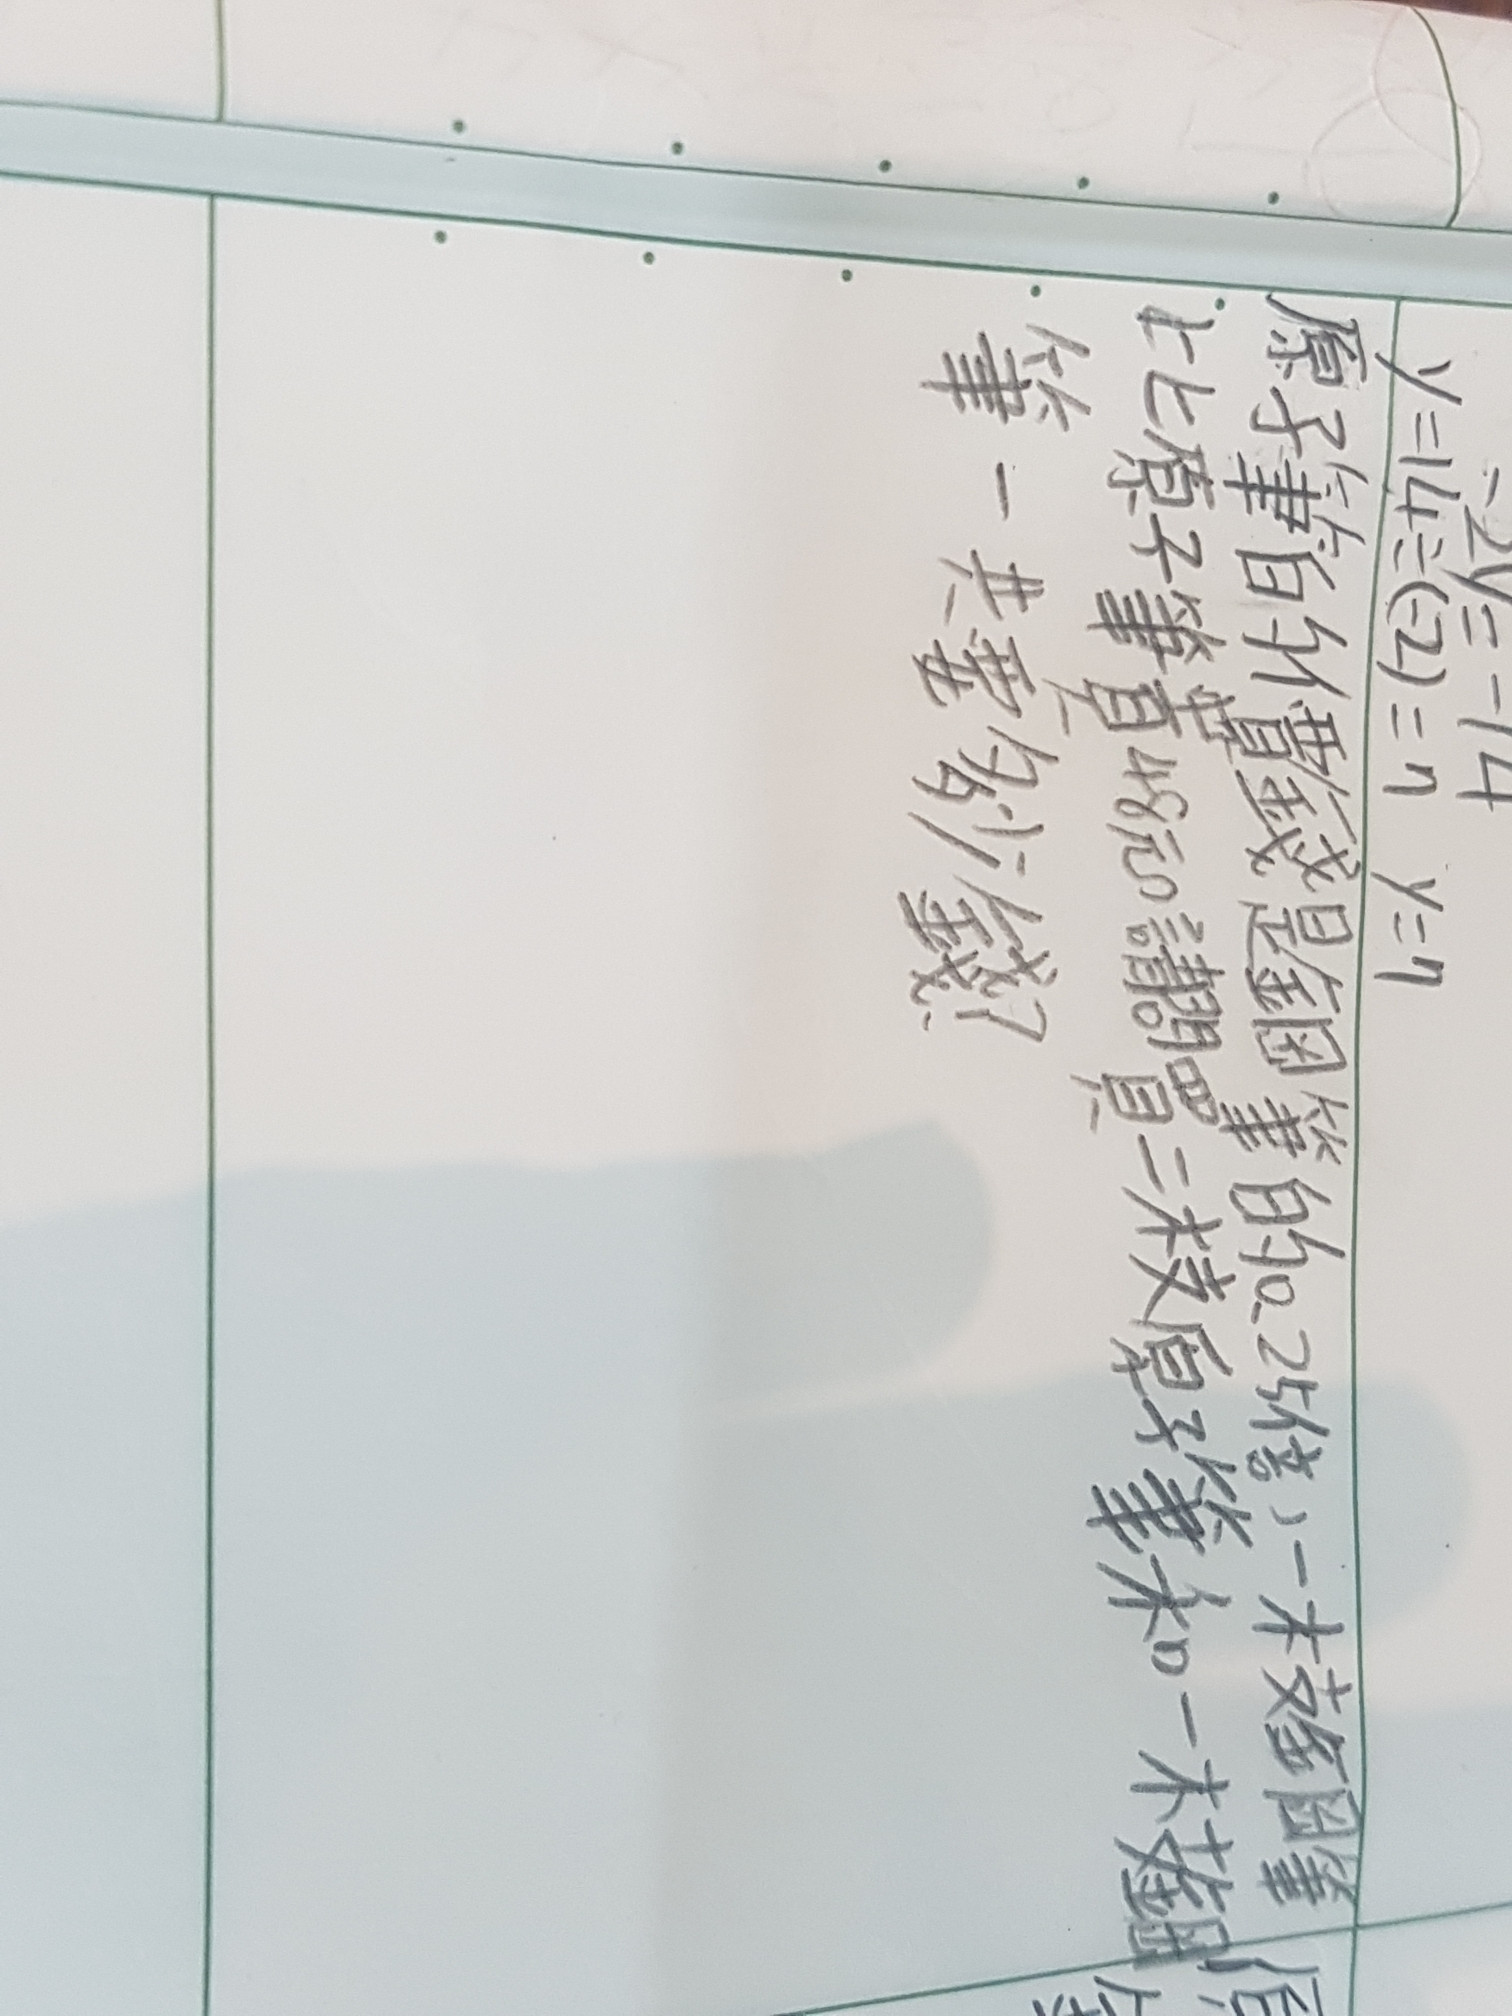 -2y=-14
y=14÷(-2)=7 y=7
原子筆的價錢是鋼筆的0.25倍,一枝鋼筆
比原子筆貴48元,請問買二枝原子筆和一枝鋼
筆一共要多少錢?